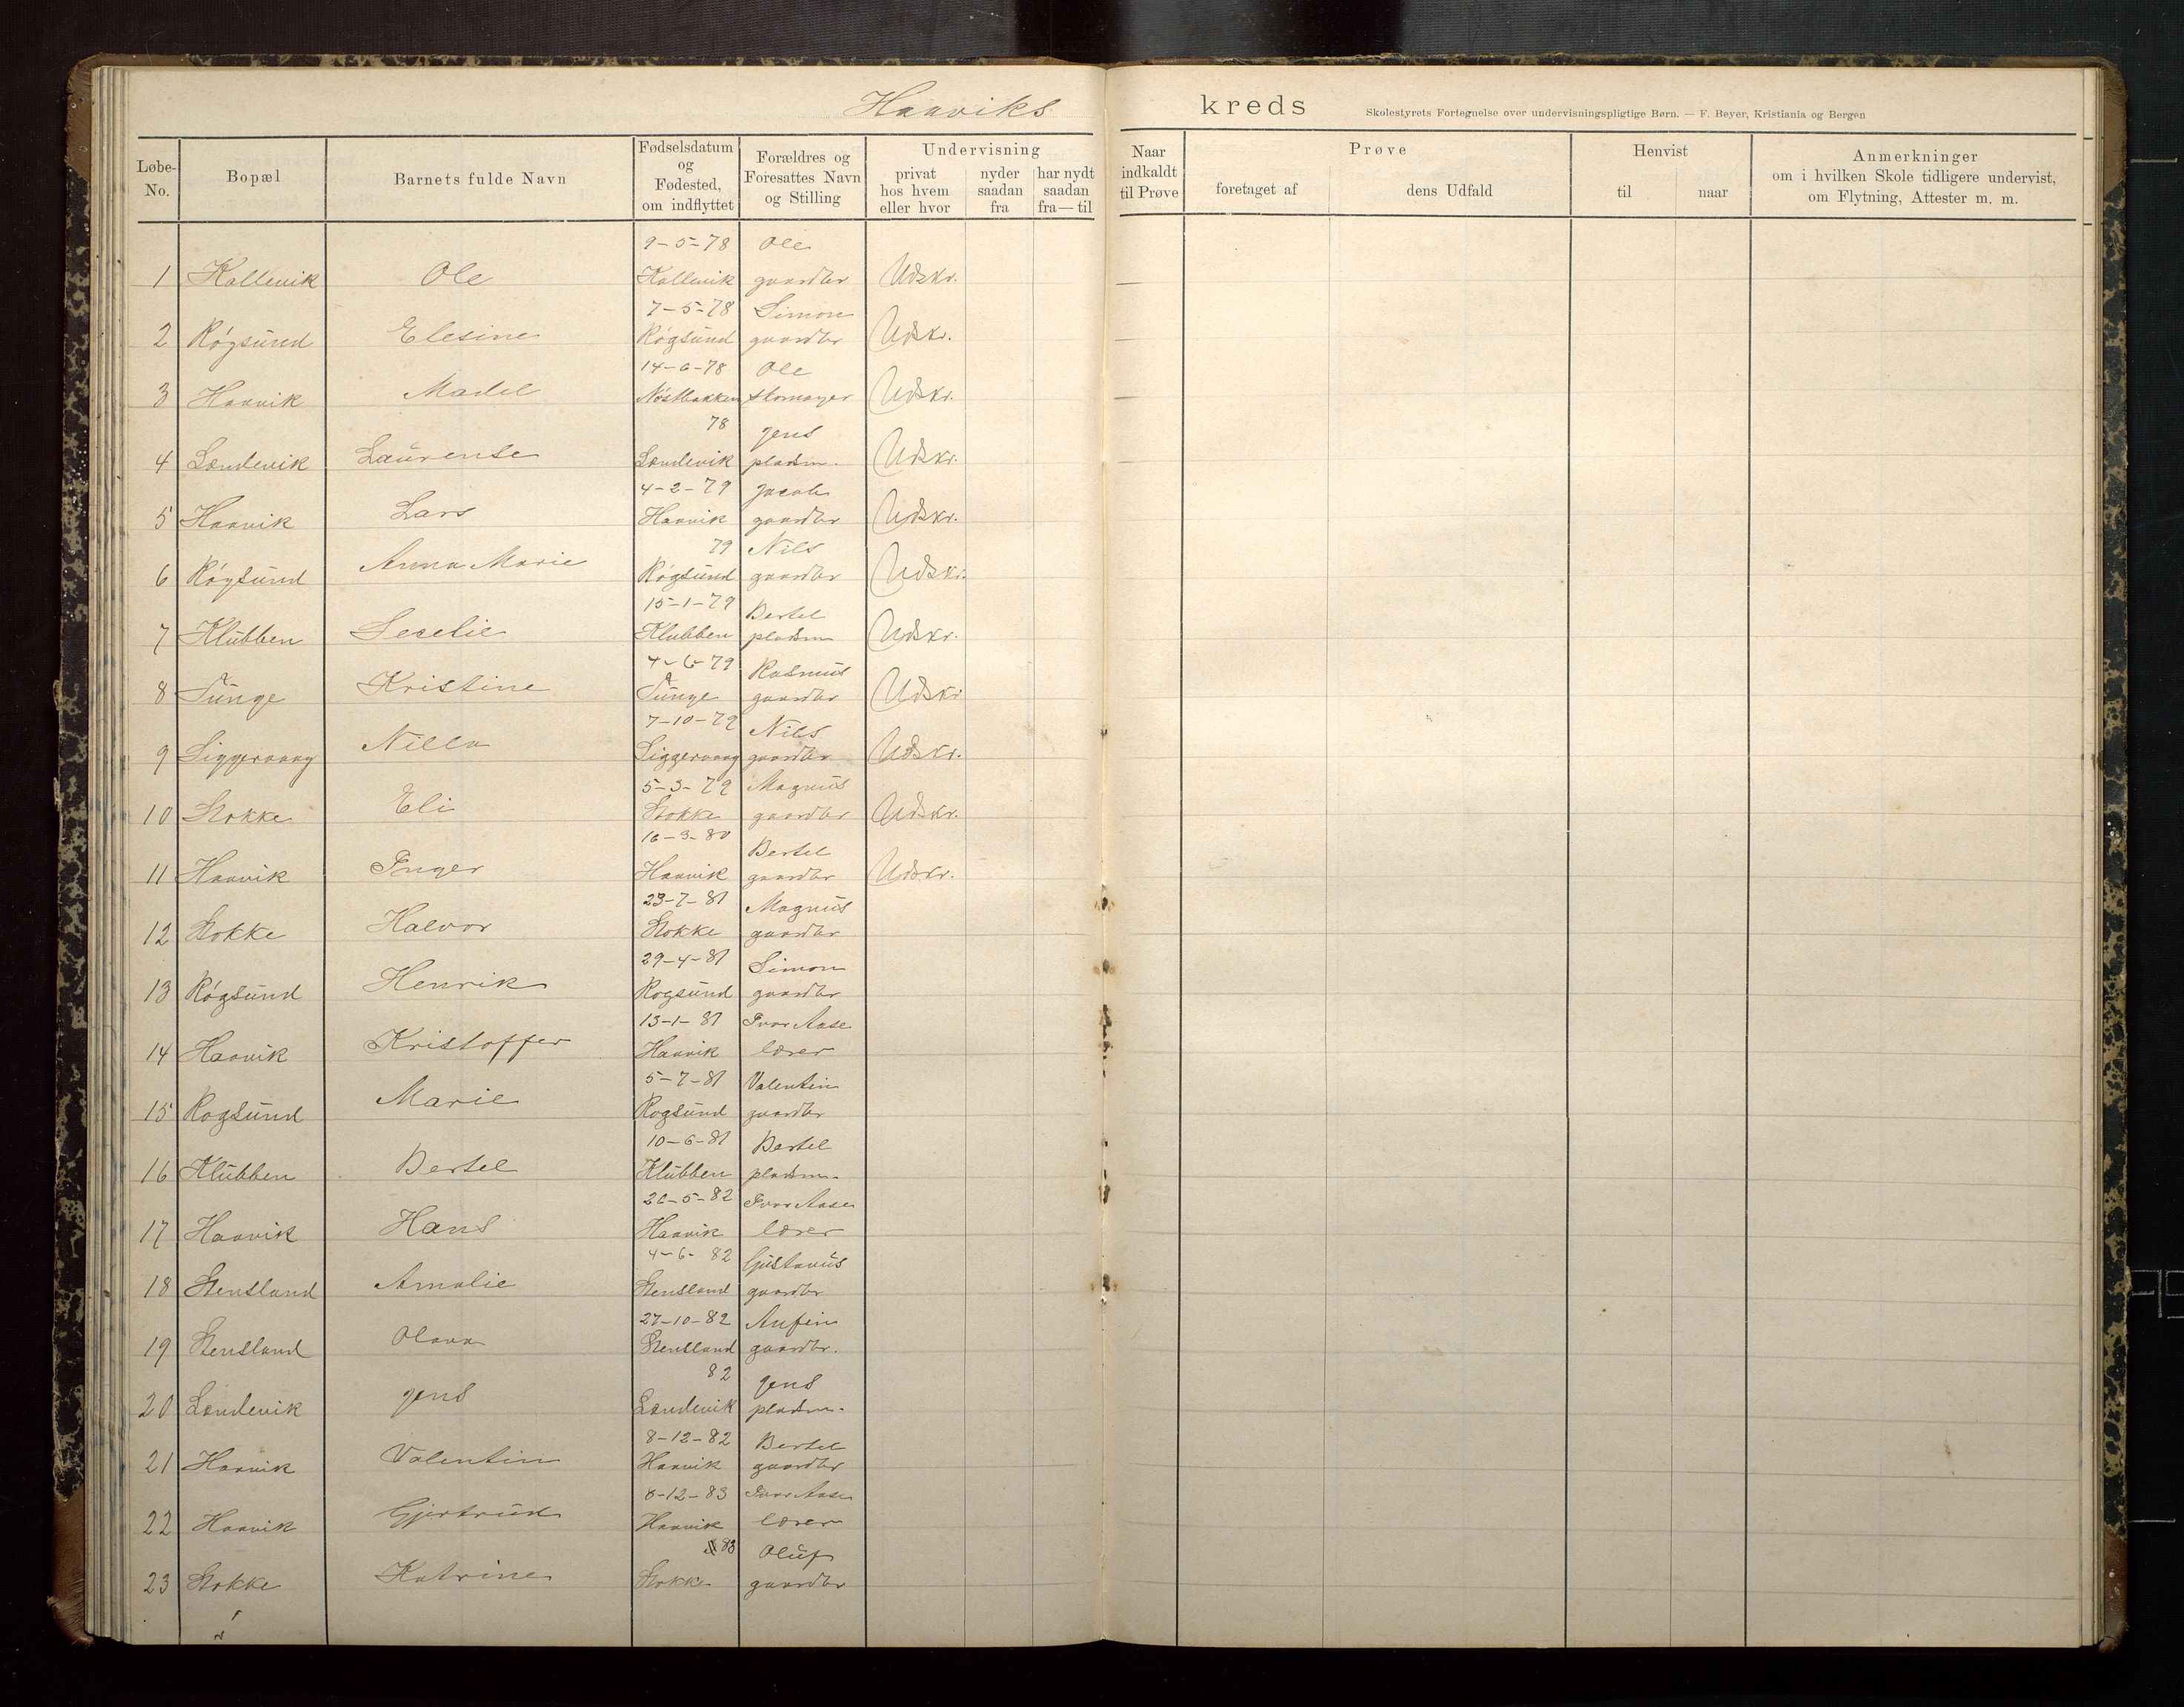 Haaviks kreds
Skolestyrets Fortegnelse over undervisningspligtige Børn. — F. Beyer, Kristiania og Bergen
Løbe-No. Bopæl Barnets fulde Navn Fødselsdatum og Fødested, om indflyttet Forældres og Foresattes Navn og Stilling Undervisning privat hos hvem eller hvor nyder saadan fra har nydt saadan fra—til Naar indkaldt til Prøve Prøve foretaget af dens Udfald Henvist til naar Anmerkninger om i hvilken Skole tidligere undervist, om Flytning, Attester m. m.
9-5-78 Ole
1 Kallevik Ole Kallevik gaardbr Udskr. —
7-5-78 Simon
2 Røgsund Elesine Røgsund gaardbr Udskr. —
14-6-78 Ole
3 Haavik Madel Nøstbakken skomager Udskr. —
78 Jens
4 Landevik Laurense Landevik pladsm. Udskr. —
4-2-79 Jacob
5 Haavik Lars Haavik gaardbr Udskr.
79 Nils
6 Røgsund Anna Marie Røgsund gaardbr Udskr.
15-1-79 Bertel
7 Klubben Secelie Klubben pladsm Udskr.
4-6-79 Rasmus
8 Tunge Kristine Tunge gaardbr Udskr
7-10-79 Nils
9 Siggervaag Nilla Siggervaag gaardbr Udskr.
5-3-79 Magnus
10 Stokke Eli Stokke gaardbr Udskr.
16-3-80 Bertel
11 Haavik Inger Haavik gaardbr Udskr.
23-7-81 Magnus
12 Stokke Halvor Stokke gaardbr
29-4-81 Simon
13 Røgsund Henrik Rogsund gaardbr
13-1-81 Ivar Aase
14 Haavik Kristoffer Haavik lærer
5-7-81 Valentin
15 Rogsund Marie Rogsund gaardbr
10-6-81 Bertel
16 Klubben Bertel Klubben pladsm.
26-5-82 Ivar Aase
17 Haavik Hans Haavik lærer
4-6-82 Gustavus
18 Stensland Amalie Stensland gaardbr
27-10-82 Anfin
19 Stensland Olava Stensland gaardbr.
82 Jens
20 Landevik Jens Landevik pladsm.
8-12-82 Bertel
21 Haavik Valentin Haavik gaardbr
8-12-83 Ivar Aase
22 Haavik Gjertrud Haavik lærer
83 Oluf
23 Stokke Katrine Stokke gaardbr